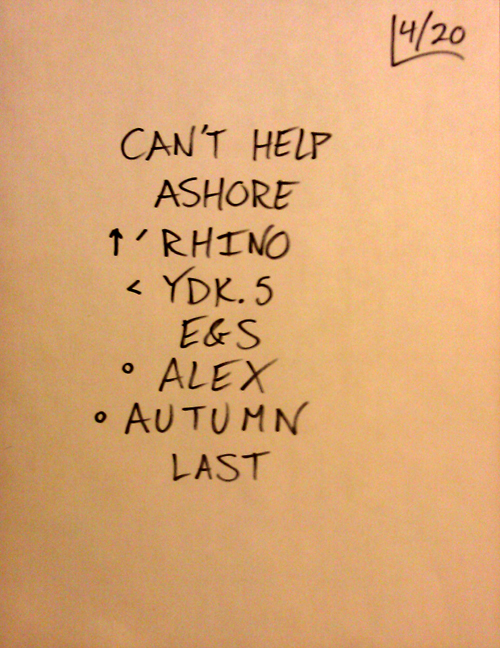 4/20
CAN'T HELP
ASHORE
↑ ′ RHINO
< YDK.5
E&S
° ALEX
° AUTUMN
LAST